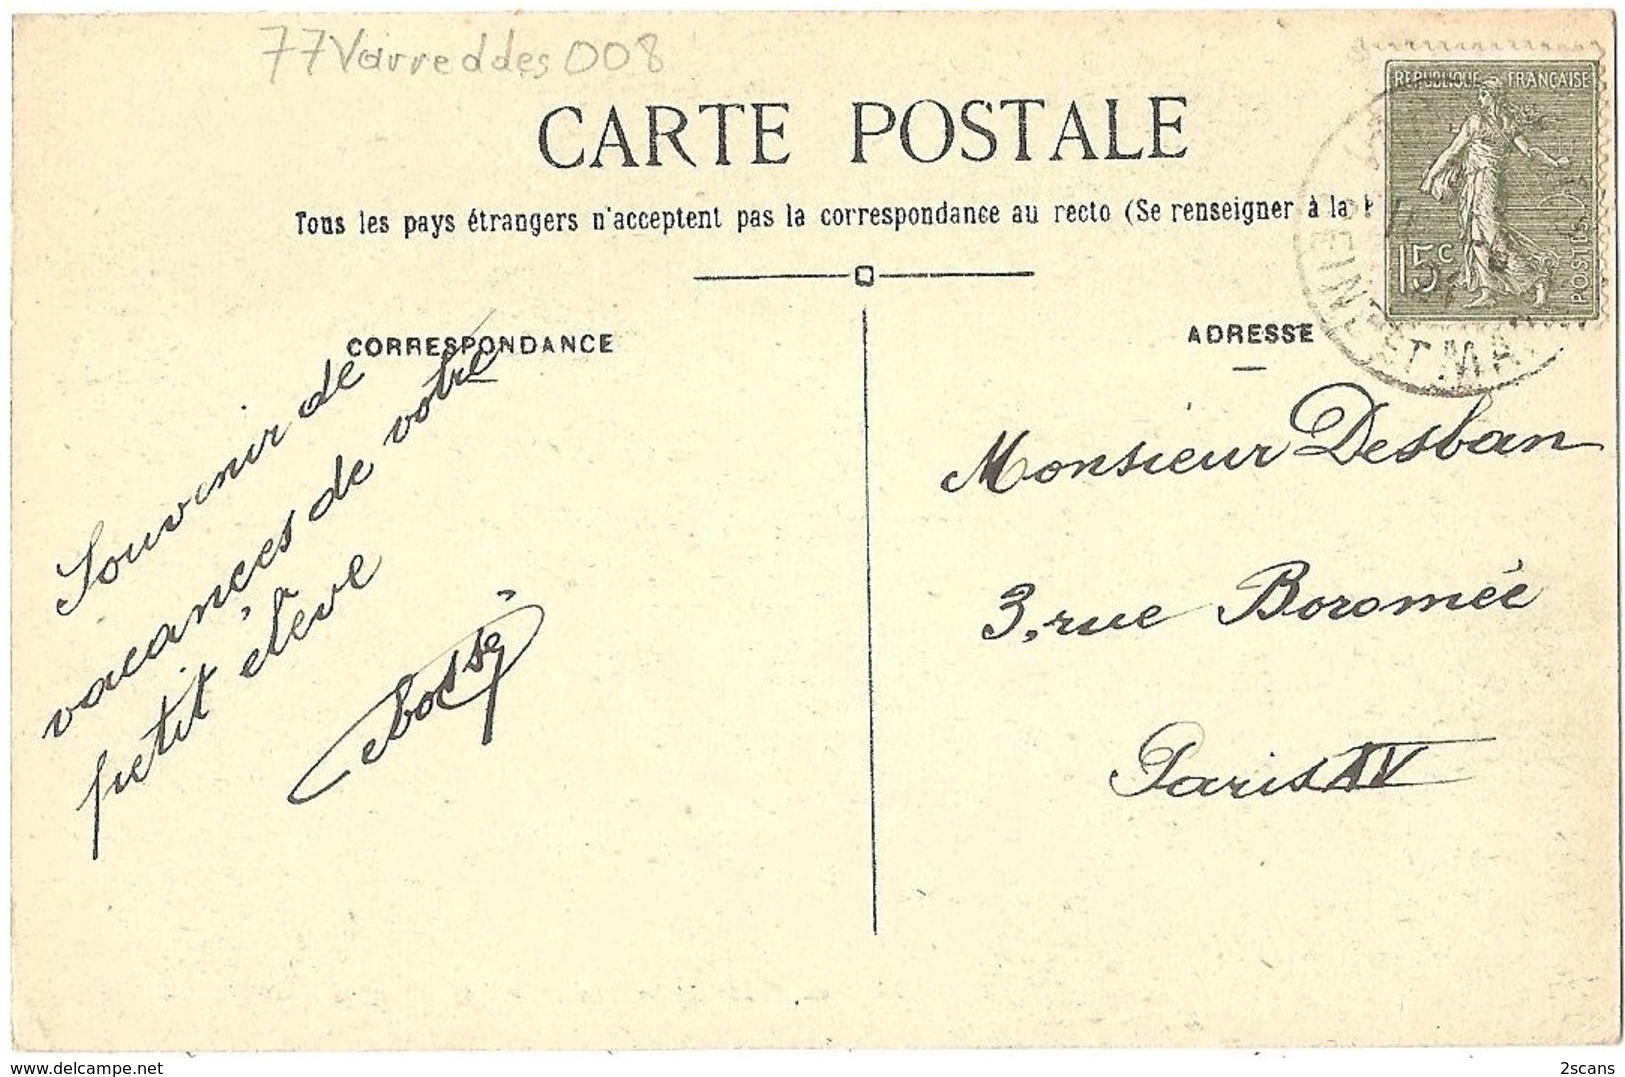 77Varreddes008
CARTE POSTALE
Tous les pays étrangers n'acceptent pas la correspondance au recto (Se renseigner à la
REPUBLIQUE FRANÇAISE
15c
POSTES
SEINE ET MA
CORRESPONDANCE
Souvenir de
vacances de votre
petit élève
ADRESSE
Monsieur Desban
3, rue Boromée
Paris XV
2scans